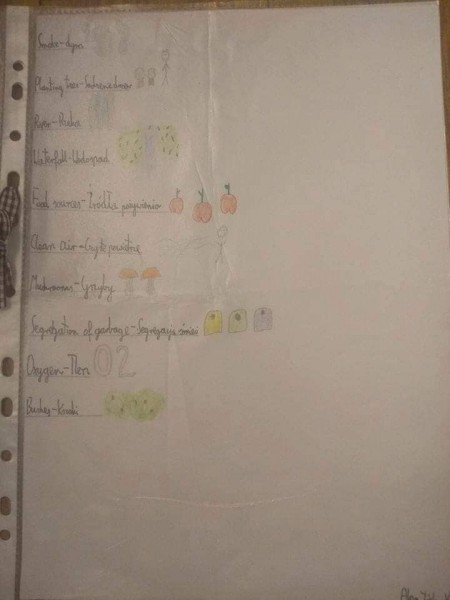 Smoke-dym
Planting trees-Sadzenie drzew
River-Rzeka
Waterfall-Wodospad
Food sources-Źródła pożywienia
Clean air-Czyste powietrze
Mushrooms-Grzyby
Segregation of garbage-Segregacja śmieci
Oxygen-Tlen O2
Bushes-Krzaki